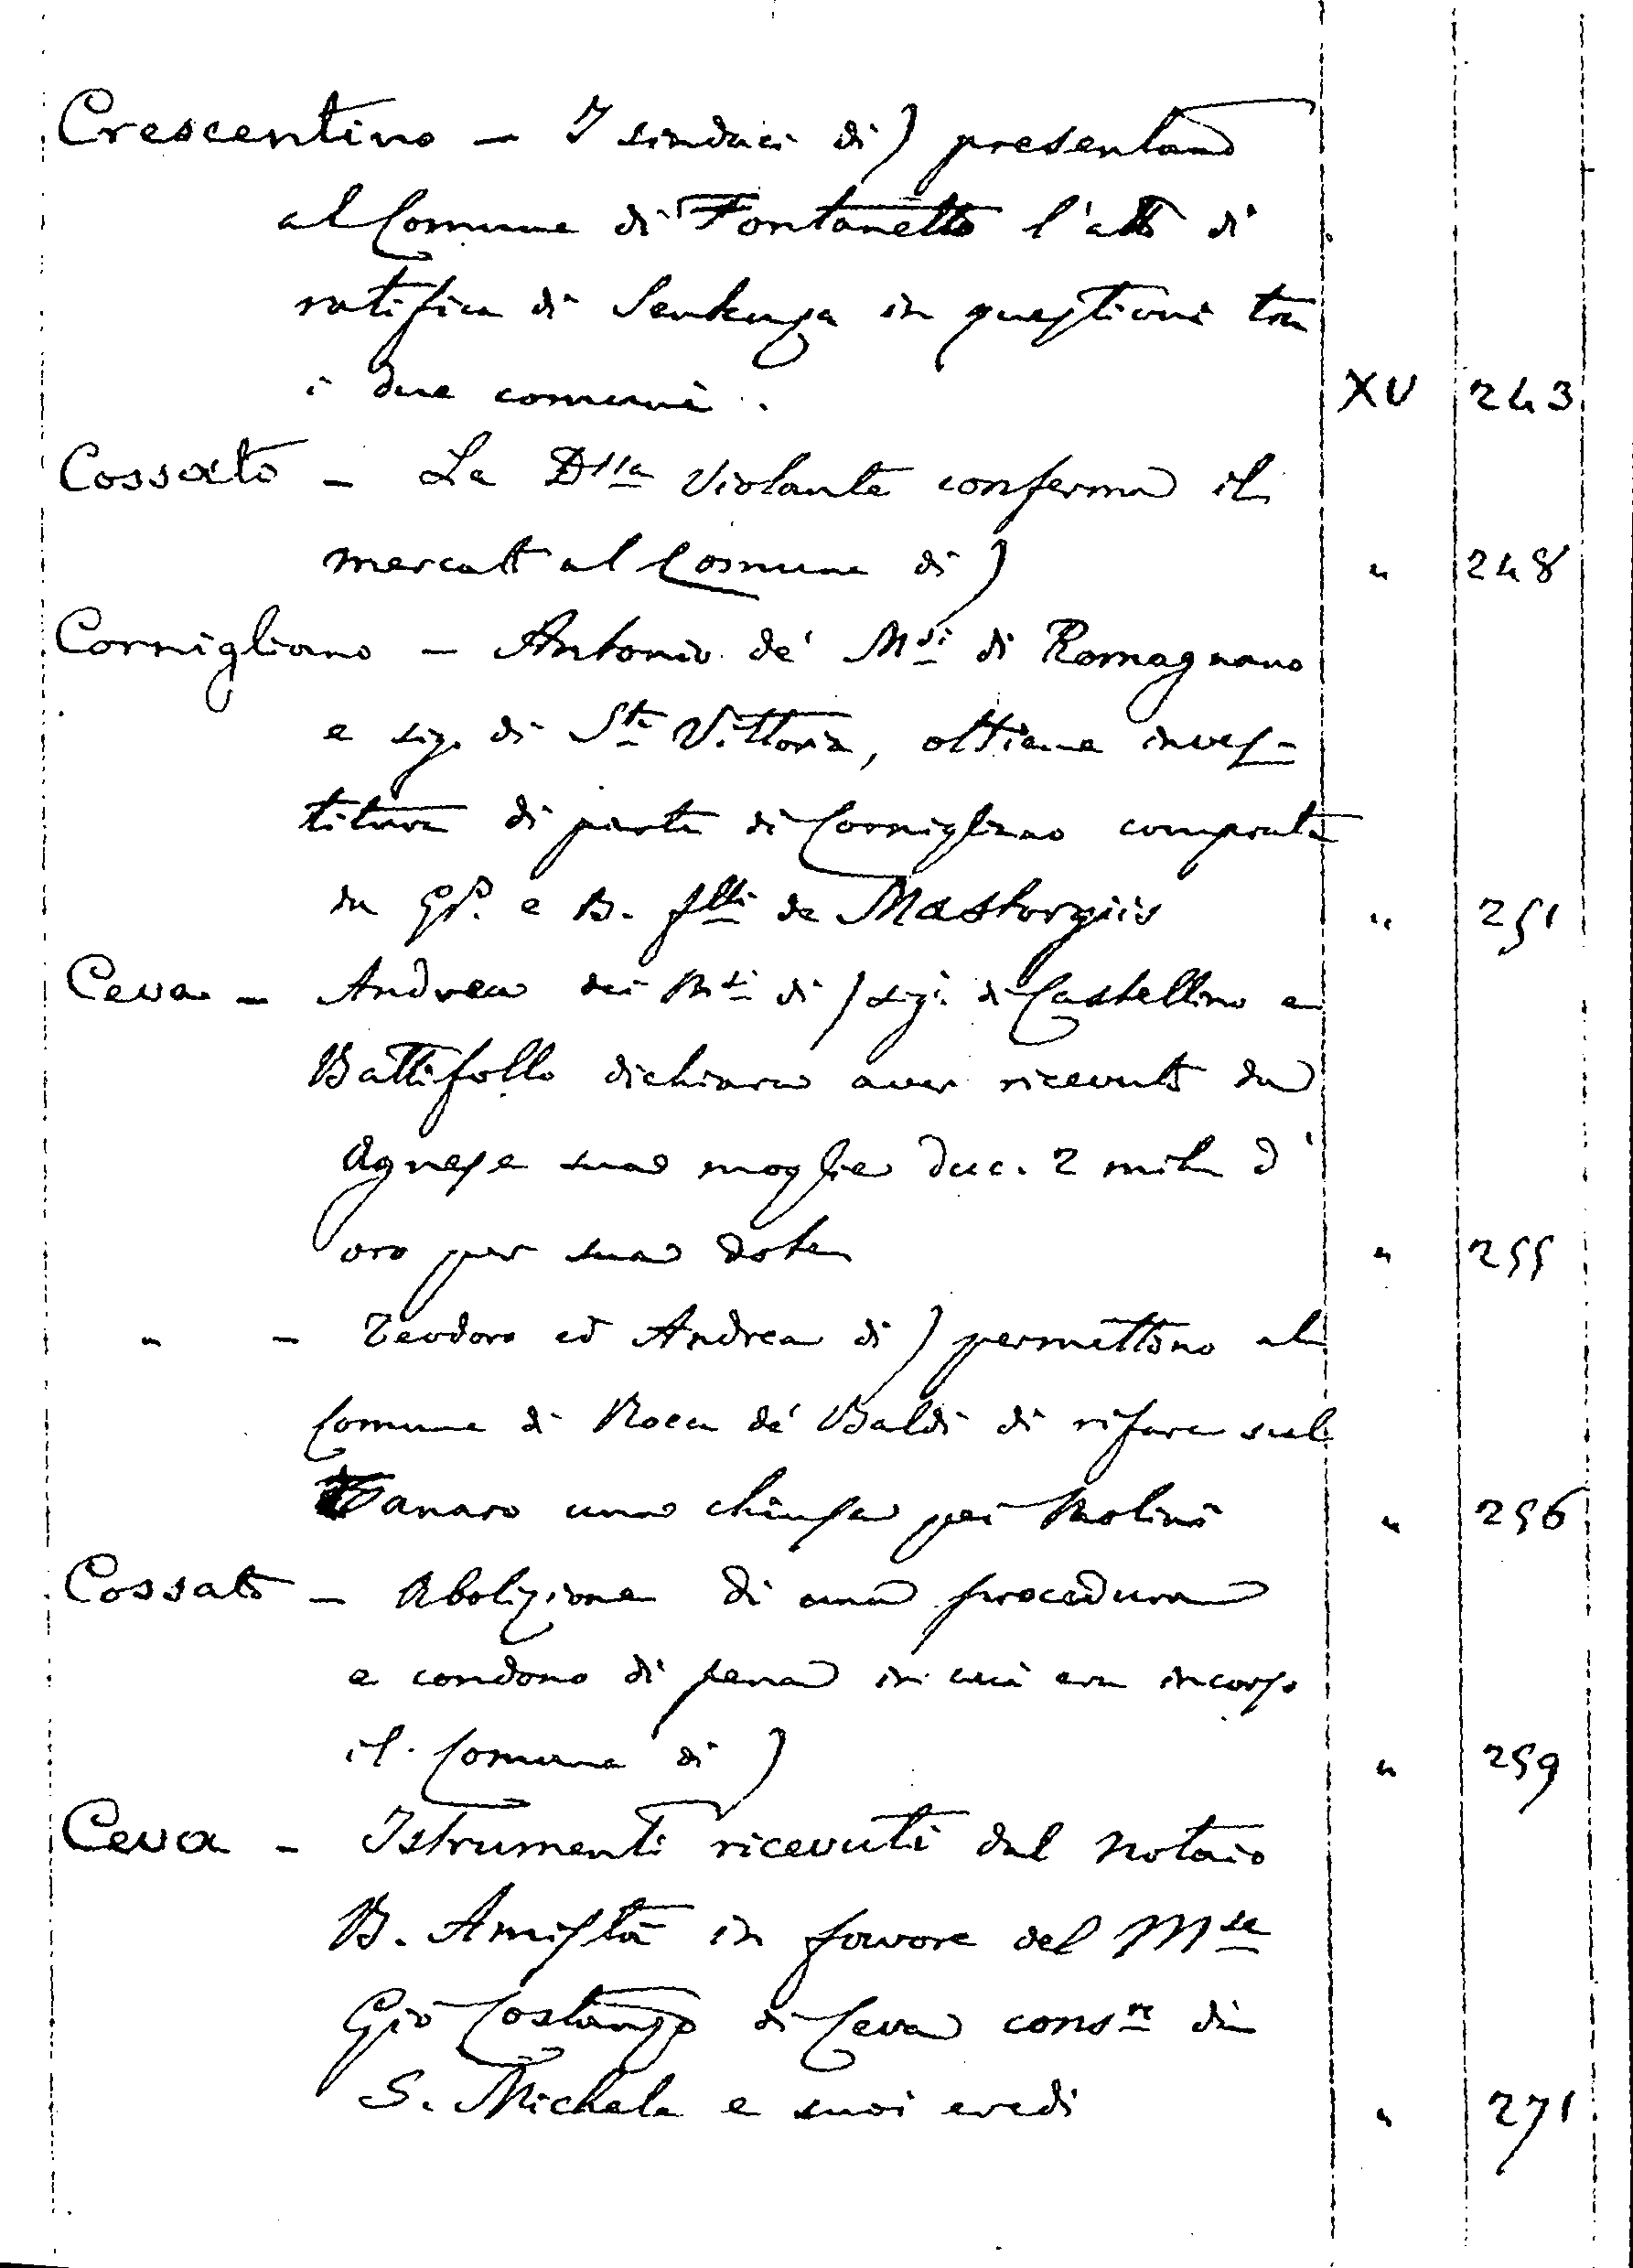 Crescentino - I sindaci di) presentano
al Comune di Fontanetto l'atto di
ratifica di Sentenza in questioni tra
i due comuni. XV 243
Cossato - La D.lla Violante conferma il
mercato al Comune di) " 248
Cornigliano - Antonio de' M.si di Romagnano
e sig. di S.ta Vittoria, ottiene inves-
titura di parte di Cornigliano comprata
da e B. f.lli de Mastorgiis " 251
Ceva - Andrea dei M.si di) sig.i di Castellino e
Battifollo dichiara aver ricevuto da
Agnese sua moglie duc. 2 mila d'
oro per sua dote " 255
" - Teodoro ed Andrea di) permettono al
Comune di Rocca de' Baldi di rifare sul
Tanaro una chiusa pei Molini " 256
Cossato - Abolizione di una procedura
e condono di pena in cui era incorso
il Comune di) " 259
Ceva - Istrumenti ricevuti dal notaio
B. Amistà in favore del M.se
Gio Costanzo di Ceva cons.re di
S. Michele e suoi eredi " 271